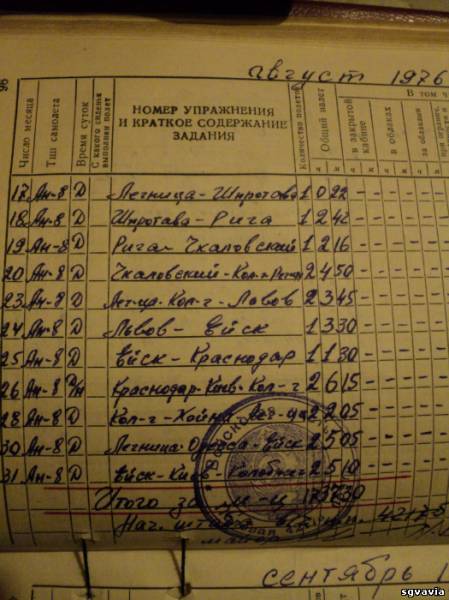 96
август 1976
Число месяца
Тип самолета
Время суток
С какого сиденья выполнял полет
НОМЕР УПРАЖНЕНИЯ
И КРАТКОЕ СОДЕРЖАНИЕ
ЗАДАНИЯ
Количество полетов
Общий налет
В том ч
в закрытой кабине
в облаках
за облаками
17 Ан-8 Д Легница-Шпротава 1 0 22 - - - - - -
18 Ан-8 Д Шпротава-Рига 1 2 42 - - - - - -
19 Ан-8 Д Рига-Чкаловский 1 2 16 - - - - - -
20 Ан-8 Д Чкаловский-Кол-г- 2 4 50 - - - - - -
23 Ан-8 Д Лег-ца-Кол-г-Львов 2 3 45 - - - - - -
24 Ан-8 Д Львов-Ейск 1 3 30 - - - - - -
25 Ан-8 Д Ейск-Краснодар 1 1 30 - - - - - -
26 Ан-8 Д/Н Краснодар-Киев-Кол-г 2 6 15
28 Ан-8 Д Кол-г-Хойна-Лег-ца 2 2 05
30 Ан-8 Д Легница-Одесса-Ейск 2 5 05
31 Ан-8 Д Ейск-Киев- 2 5 10
Итого за м-ц 37 30
Нач. штаба
майор
сентябрь 1
sgvavia